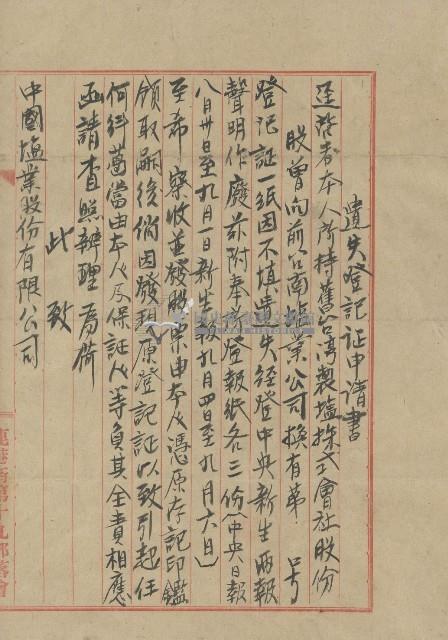 遺失登記証申請書
逕啓者本人所持舊台灣製塩株式會社股份
股曾向前台南塩業公司換有第　號
登記証一紙因不慎遺失經登中央新生兩報
聲明作廢茲附奉登報紙各三份(中央日報
八月卅日至九月一日新生報九月四日至九月六日)
至希察收並發股票由本人憑原存記印鑑
領取嗣後倘因發現原登記証以致引起任
何糾葛當由本人及保証人等負其全責相應
函請查照辨理為荷
此致
中國塩業股份有限公司